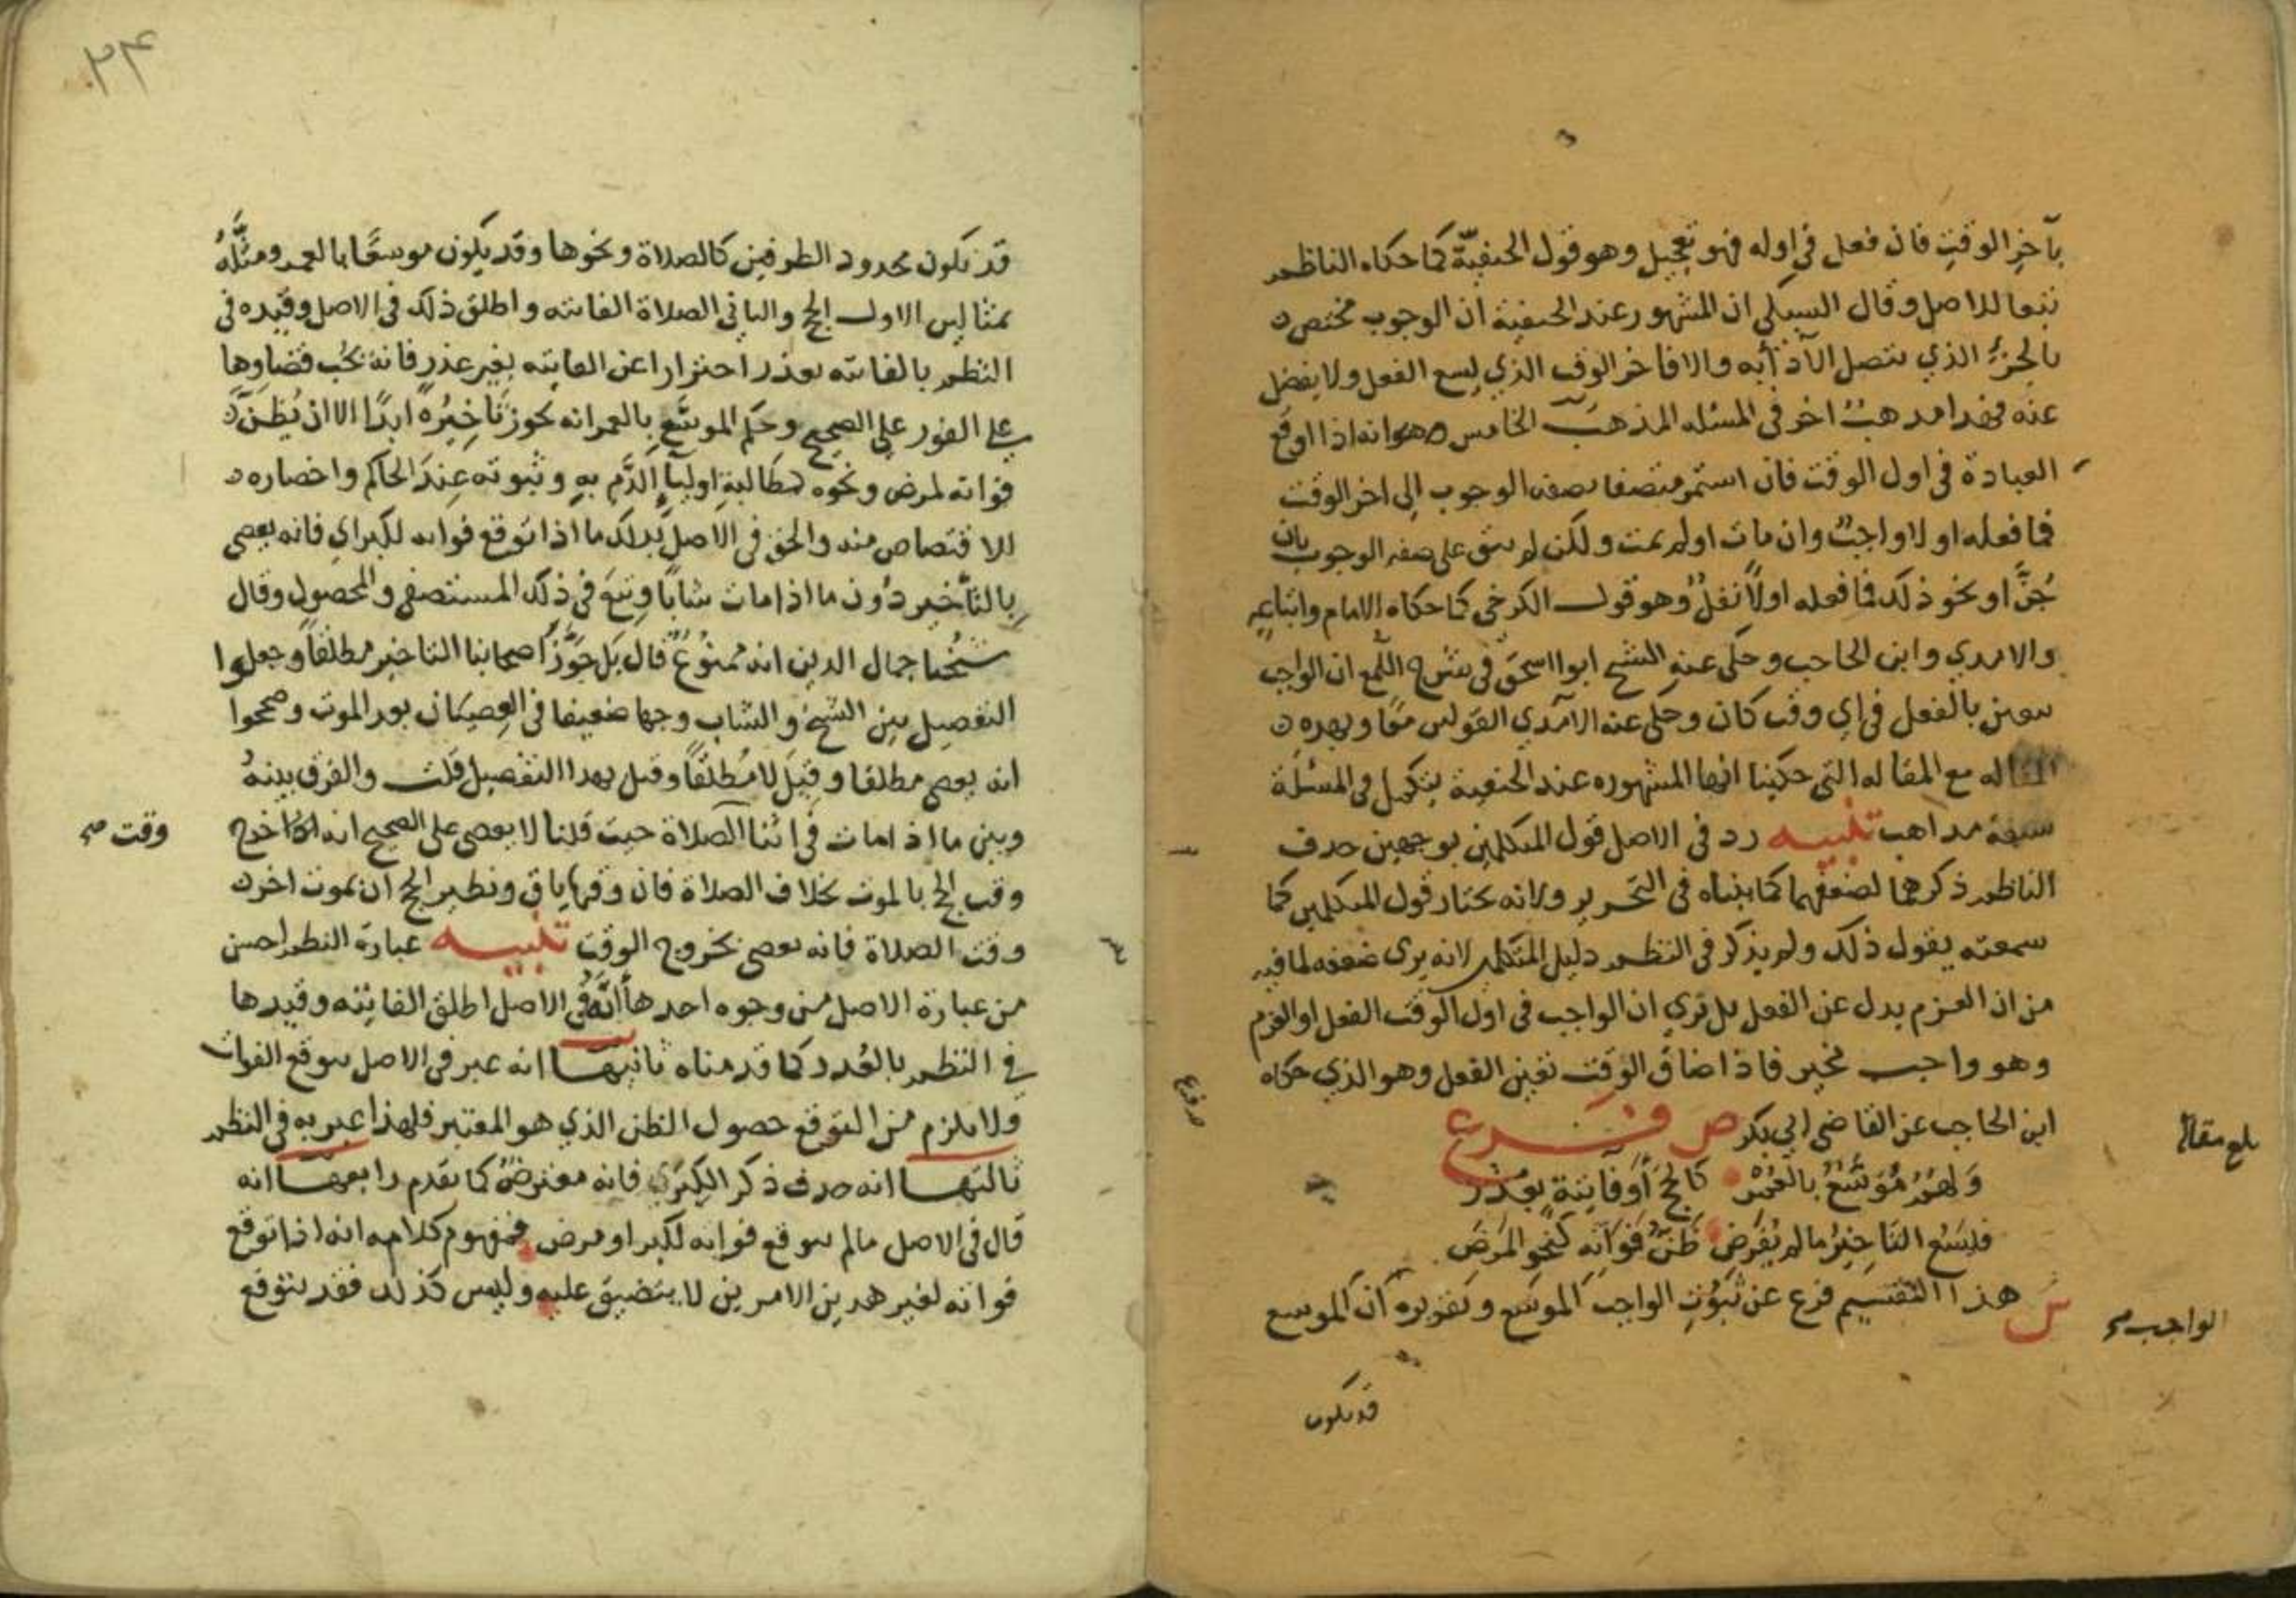 بآخر الوقت فان فعل في اوله فهو تعجيل وهو قول الحنفية كما حكاه الناظم
تبعا للاصل وقال السبكي ان المشهور عند الحنفية ان الوجوب مختص
بالجزء الذي يتصل الآداء به والا فاخر الوقت الذي يسع الفعل ولا يفضل
عنه فهذا مذهب اخر في المسئله المذهب الخامس وهو انه اذا اوقع
العبادة في اول الوقت فان استمر متصفا بصفه الوجوب الى اخر الوقت
فما فعله اولا واجب وان مات او لم يمت ولكن لم يبق على صفه الوجوب بان
جن او نحو ذلك فما فعله اولا نفل وهو قول الكرخي كما حكاه الامام واتباعه
والامدي وابن الحاجب وحكى عنه الشيخ ابو اسحق في شرح اللمع ان الواجب
يتعين بالفعل في اي وقت كان وحكى عنه الآمدي القولين معا وبهذه
المقاله مع المقاله التي حكينا انها المشهوره عند الحنفية يتكمل في المسئلة
سبعة مذاهب تنبيه رد في الاصل قول المتكلمين بوجهين حذف
الناظم ذكرهما لضعفهما كما بيناه في التحرير ولانه يختار قول المتكلمين كما
سمعته يقول ذلك ولم يذكر في النظم دليل المتكلمين لانه يرى ضعفه لما فيه
من ان العزم بدل عن الفعل بل نرى ان الواجب في اول الوقت الفعل او العزم
وهو واجب مخير فاذا ضاق الوقت تعين الفعل وهو الذي حكاه
ابن الحاجب عن القاضي ابي بكر ص فرع
بلغ مقابلة
وهو موسع بالعمر كالحج او فايتة بعذر
فليسع التاخير ما لم يفرض ظن فواته كنحو المرض
ش هذا التقسيم فرع عن ثبوت الواجب الموسع وتقريره ان الموسع
الواجب صح
قد يكون
٢٤
قد يكون محدود الطرفين كالصلاة ونحوها وقد يكون موسعا بالعمر ومثله
بمثالين الاول الحج والثاني الصلاة الفائته واطلق ذلك في الاصل وقيده في
النظم بالفائته بعذر احترازا عن الفايته بغير عذر فانه يجب قضاوها
على الفور على الصحيح وحكم الموسع بالعمر انه يجوز تاخيره ابدا الا ان يظن
فواته لمرض ونحوه كمطالبة اوليآء الدم به وثبوته عند الحاكم واحضاره
للاقتصاص منه والحق في الاصل بذلك ما اذا توقع فواته لكبر اي فانه يعصي
بالتأخير دون ما اذا مات شابا وتبع في ذلك المستصفى والمحصول وقال
شيخنا جمال الدين انه ممنوع قال بل جوز اصحابنا التاخير مطلقا وجعلوا
التفصيل بين الشيخ والشاب وجها ضعيفا في العصيان بعد الموت وصححوا
انه يعصي مطلقا وقيل لا مطلقا وقيل بهذا التفصيل قلت والفرق بينه
وبين ما اذا مات في اثنا الصلاة حيث قلنا لا يعصى على الصحيح انه اذا خرج
وقت صح
وقت الحج بالموت بخلاف الصلاة فان وقتها باق ونظير الحج ان يموت اخر
وقت الصلاة فانه يعصي بخروج الوقت تنبيه عبارة النظم احسن
من عبارة الاصل من وجوه احدها انه في الاصل اطلق الفايته وقيدها
في النظم بالعذر كما قدمناه ثانيها انه عبر في الاصل بتوقع الفوات
ولا يلزم من التوقع حصول الظن الذي هو المعتبر فلهذا عبر به في النظم
ثالثها انه حذف ذكر الكبر فانه معترض كما تقدم رابعها انه
قال في الاصل ما لم يتوقع فواته لكبر او مرض فمفهوم كلامه انه اذا توقع
فواته لغير هذين الامرين لا يتضيق عليه وليس كذلك فقد يتوقع